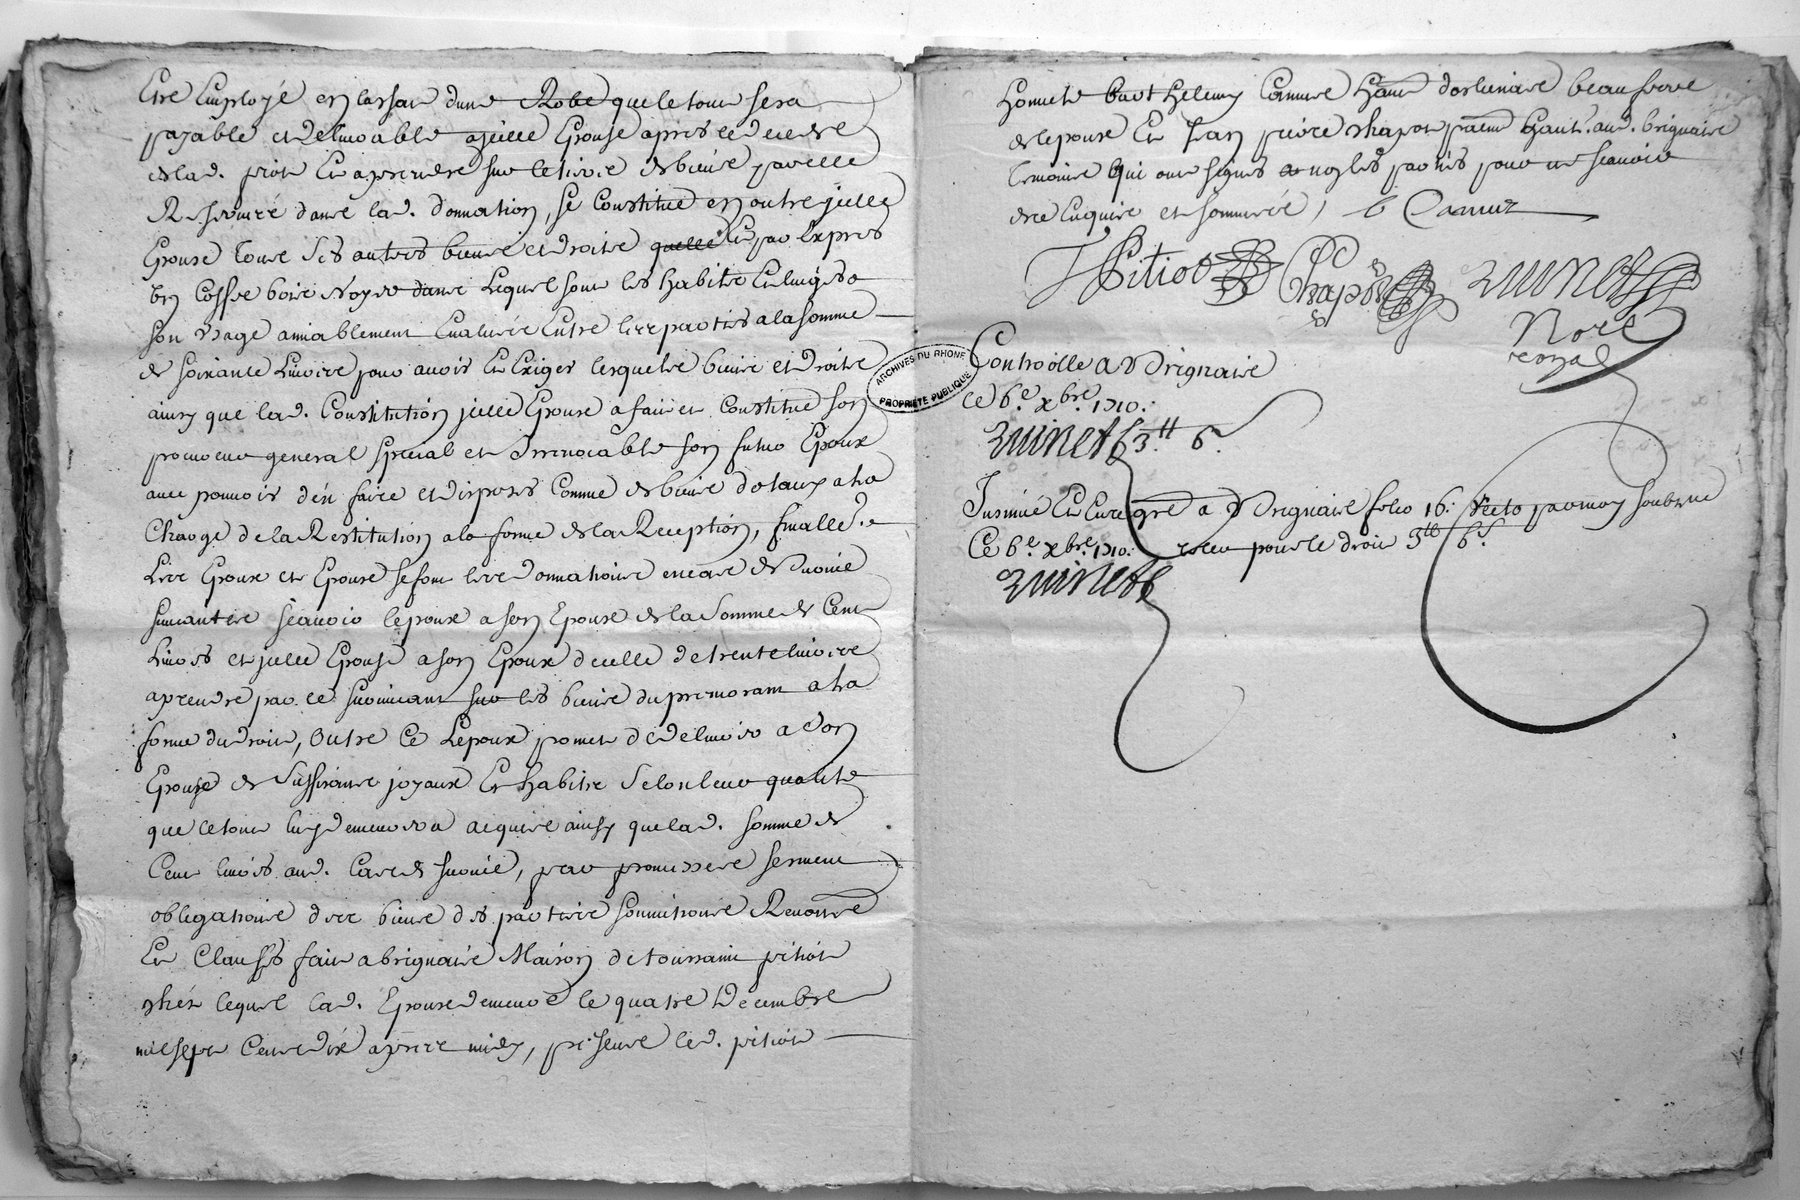 Etre Employé en lachat dune Robe que le tout sera
payable et delivrable a jcelle Epouse apres le decedz
de lad. petiot Et a prendre sur le tiers des biens par elle
Reservéz dans lad. donnation, se Constitue en outre jcelle
Epouse tous Ses autres biens et droits quelle Et par Expres
Un Coffre bois Noyer dans Lequel sont les habits Et linges a
son Usage amiablement Evalués Entre les parties a la somme
de soixante Livres pour avoir Et Exiger lesquels biens et droits
ainsy que lad. Constitution jcelle Epouse a fait et Constitué son
procureur general special et Irrevocable son futur Epoux
avec pouvoir den faire et disposer Comme de biens dotaux a la
Charge de la Restitution a la forme de la Reception, finallem.t
Les Epoux et Epouse se font les donnations en cas de survie
suivantes scavoir lepoux a son Epouse de la Somme de Cent
Livres et jcelle Epouse a son Epoux de celle de trente livres
a prendre par le survivant sur les biens du premourant a la
forme du droit, Outre Ce Lepoux promet de delivrer a Son
Epouse de Suffisants joyaux Et habits Selon leur qualité
que le tout luy demeurera acquis ainsy que lad. somme de
Cent livres aud. Cas de survie, par promesses serment
obligations des biens des parties soumissions Renonce
Et Clauses fait a brignais Maison de toussaint petiot
chéz lequel lad. Epouse demeure le quatre Decembre
mil sept Cents dix apres midy, présents led. petiot
honneste barthelemy Camus ... dorlienas beaufrere
de lepoux Et Jean pierre chapot ... aud. brignais
temoins Qui ont signés et non les parties pour ne scavoir
de ce Enquis et sommés, b Camus
Petiot Chapot Quinet
Nore
royal
Controllé a Brignais
Ce 6.e xbre. 1710.
Quinet 3.tt 6.s
Insinué Et Enregré a Brignais folio 16. Recto par moy soubsne
Ce 6.e xbre. 1710. receu pour le droit 3tt 6s.
Quinet
ARCHIVES DU RHONE
PROPRIÉTÉ PUBLIQUE